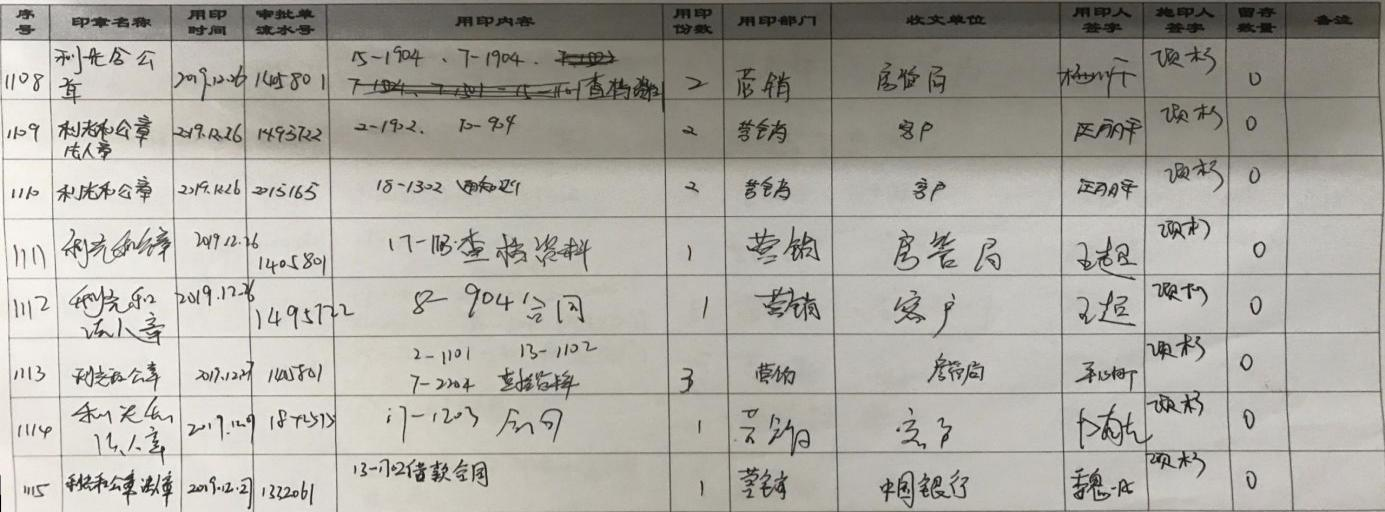 序号 印章名称 用印时间 审批单流水号 用印内容 用印份数 用印部门 收文单位 用印人签字 施印人签字 留存数量 备注
1108 公章 2019.12.26 1405801 15-1904、7-1904、 查档资料 2 营销 房管局 项杉 0
1109 利光和公章 法人章 2019.12.26 1495722 2-1902、 10-904 2 营销 客户 项杉 0
1110 利光和公章 2019.12.26 2015165 18-1302 2 营销 客户 项杉 0
1111 利光和公章 2019.12.26 1405801 查档资料 1 营销 房管局 王超 项杉 0
1112 利光和 法人章 2019.12.26 1495722 8-904合同 1 营销 客户 王超 项杉 0
1113 利光和公章 2019.12.27 1405801 2-1101 13-1102 7-2204 查档资料 3 营销 房管局 项杉 0
1114 利光和 法人章 17-1203 合同 1 营销 客户 项杉 0
1115 利光和公章法人章 2019.12.27 1332061 13-1702借款合同 1 营销 中国银行 项杉 0